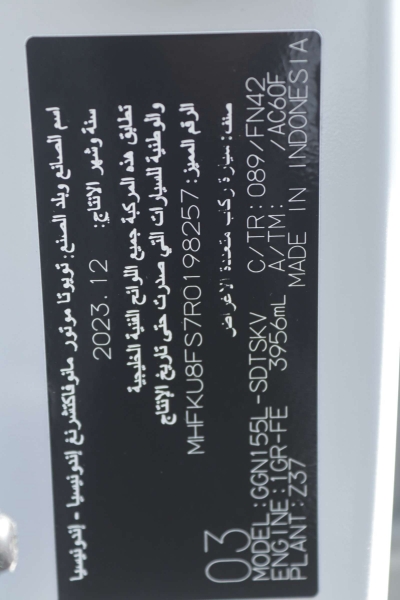 اسم الصانع وبلد الصنع: تويوتا موتور مانوفاكتشرنغ إندونيسيا - إندونيسيا
سنة وشهر الإنتاج: 2023.12
تطابق هذه المركبة جميع اللوائح الفنية الخليجية
والوطنية للسيارات التي صدرت حتى تاريخ الإنتاج
الرقم المميز: MHFKU8FS7R0198257
صنف: سيارة ركاب متعددة الأغراض
03
MODEL:GGN155L-SDTSKV C/TR:089/FN42
ENGINE:1GR-FE 3956mL A/TM: /AC60F
PLANT:Z37 MADE IN INDONESIA